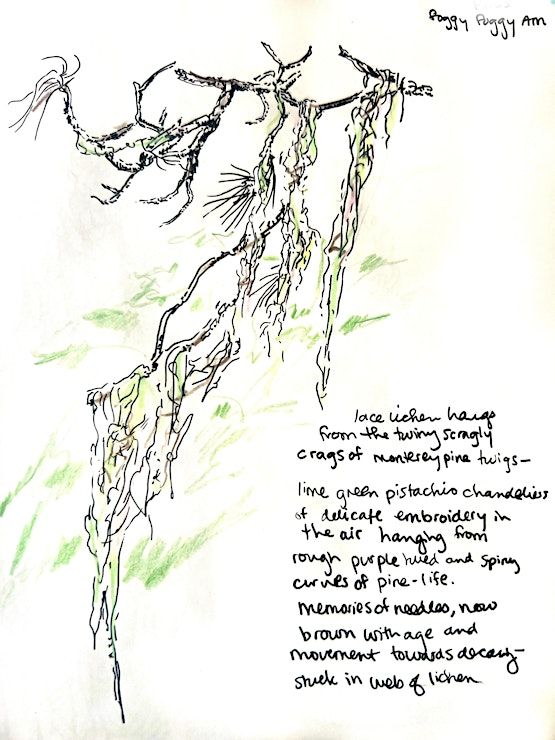 Foggy Foggy AM
lace lichen hangs
from the twiny scragly
crags of monterey pine twigs—
lime green pistachio chandeliers
of delicate embroidery in
the air hanging from
rough purple hued and spiny
curves of pine-life.
memories of needles, now
brown with age and
movement towards decay—
stuck in web of lichen